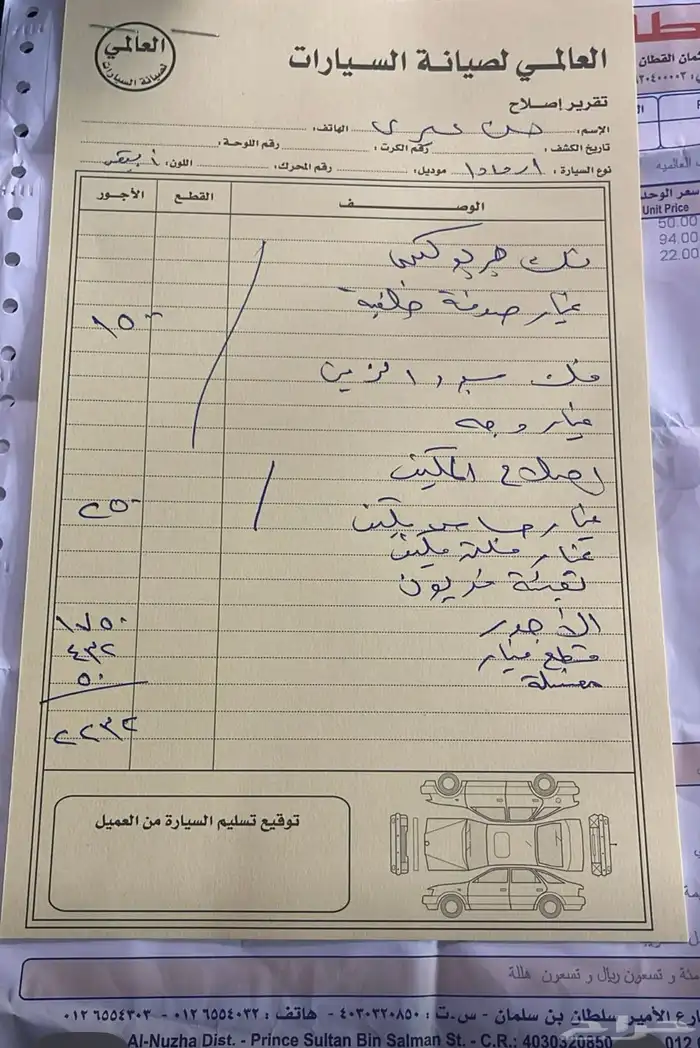 العالمي
لصيانة السيارات
العالمي لصيانة السيارات
تقرير إصلاح
الإسم: حسن عسيري الهاتف:
تاريخ الكشف: رقم الكرت: رقم اللوحة:
نوع السيارة: ارمادا موديل: رقم المحرك: اللون: أبيض
الوصف القطع الأجور
فك جربوكس
غيار صوفة خلفية
١٥٠٠
فك
غيار وجه
إصلاح المكيف
غيار حساس مكيف ٢٥٠
غيار فلتر مكيف
تعبئة فريون
الأجور ١٧٥٠
قطع غيار ٤٣٢
مغسلة ٥٠
٢٢٣٢
توقيع تسليم السيارة من العميل
طا
ثمان القطان
سعر الوحد
Unit Price
50.00
94.00
22.00
العالميه
مئة و تسعون ريال و تسعون هللة
ارع الأمير سلطان بن سلمان - س.ت: ٤٠٣٠٣٢٠٨٥٠ - هاتف: ٠١٢٦٥٥٤٠٣٢ - ٠١٢٦٥٥٤٣٠٣
Al-Nuzha Dist. - Prince Sultan Bin Salman St. - C.R.: 4030320850 012
حراج